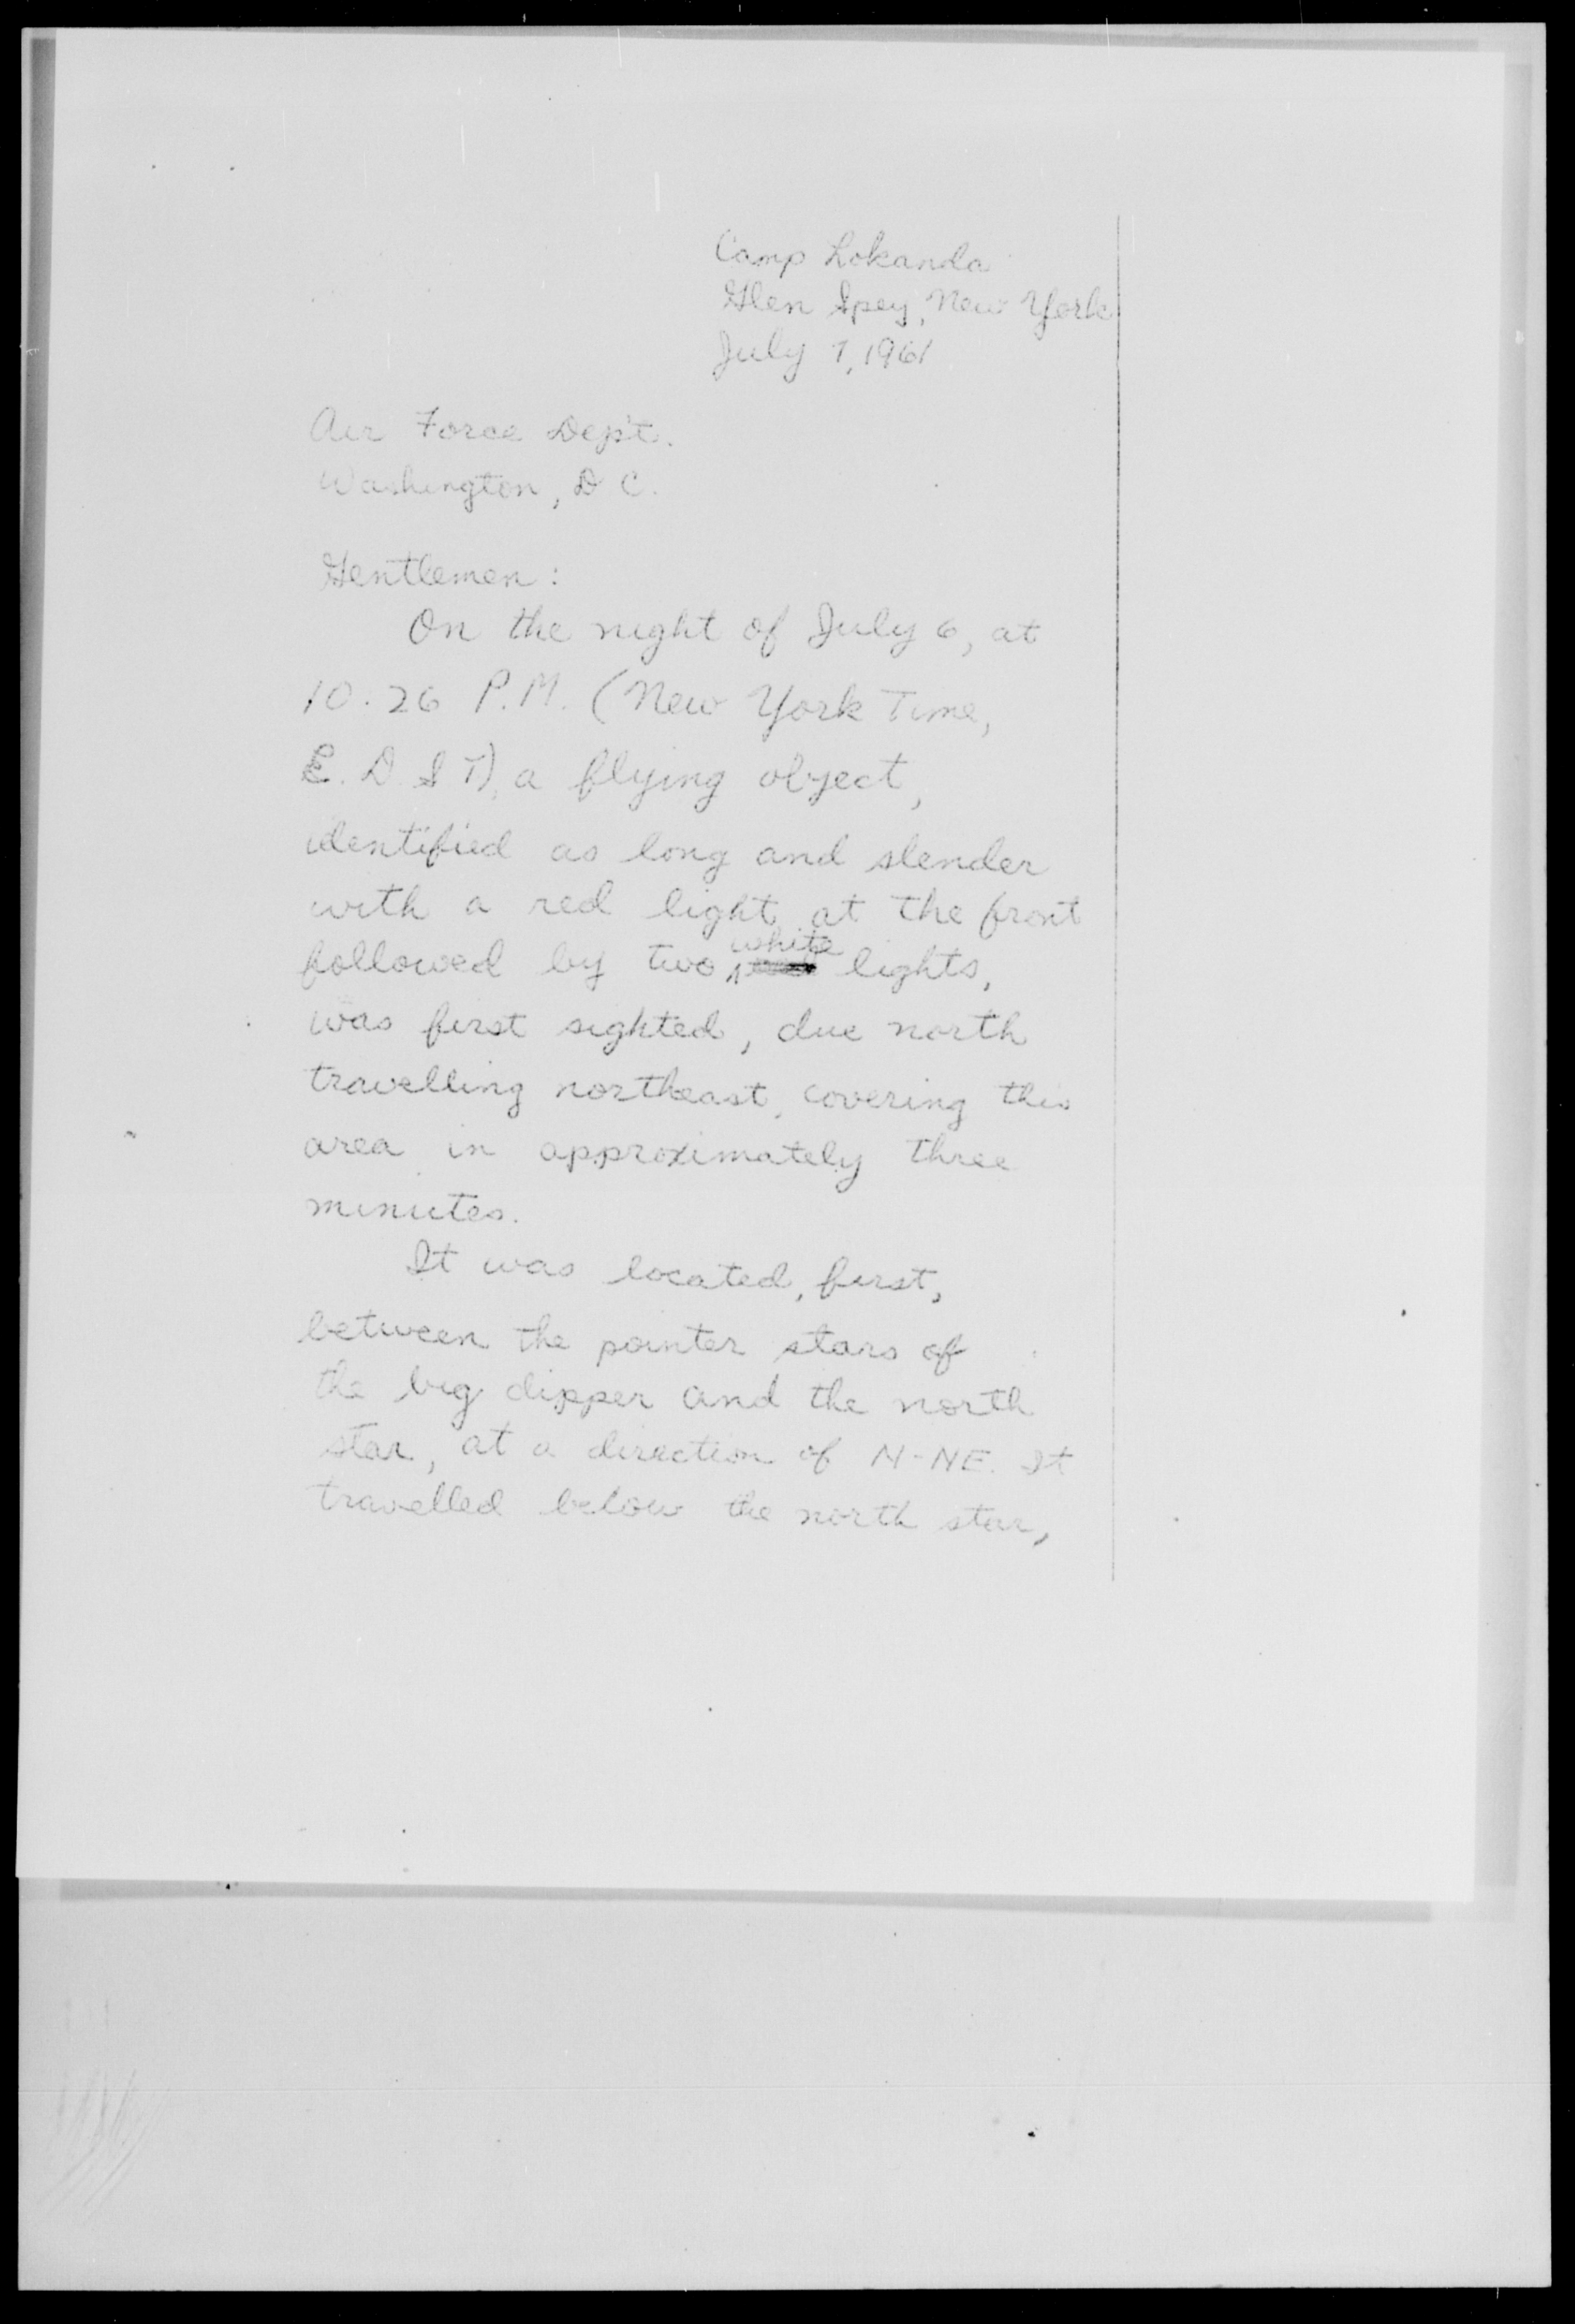 Camp Lokanda
Glen Spey, New York
July 7, 1961
Air Force Dep't.
Washington, D C.
Gentlemen:
On the night of July 6, at
10.26 P.M. (New York Time,
E. D S T), a flying object,
identified as long and slender
with a red light at the front
followed by two white lights,
was first sighted, due north
travelling northeast, covering this
area in approximately three
minutes.
It was located, first,
between the pointer stars of
the big dipper and the north
star, at a direction of N-NE. It
travelled below the north star,